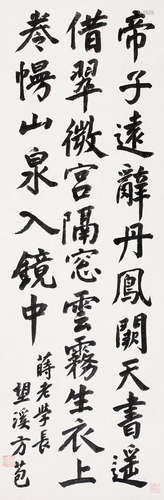 帝子遠辭丹鳳闕天書遥
借翠微宮隔窓雲霧生衣上
卷幔山泉入鏡中
蔣老学長
望溪方苞